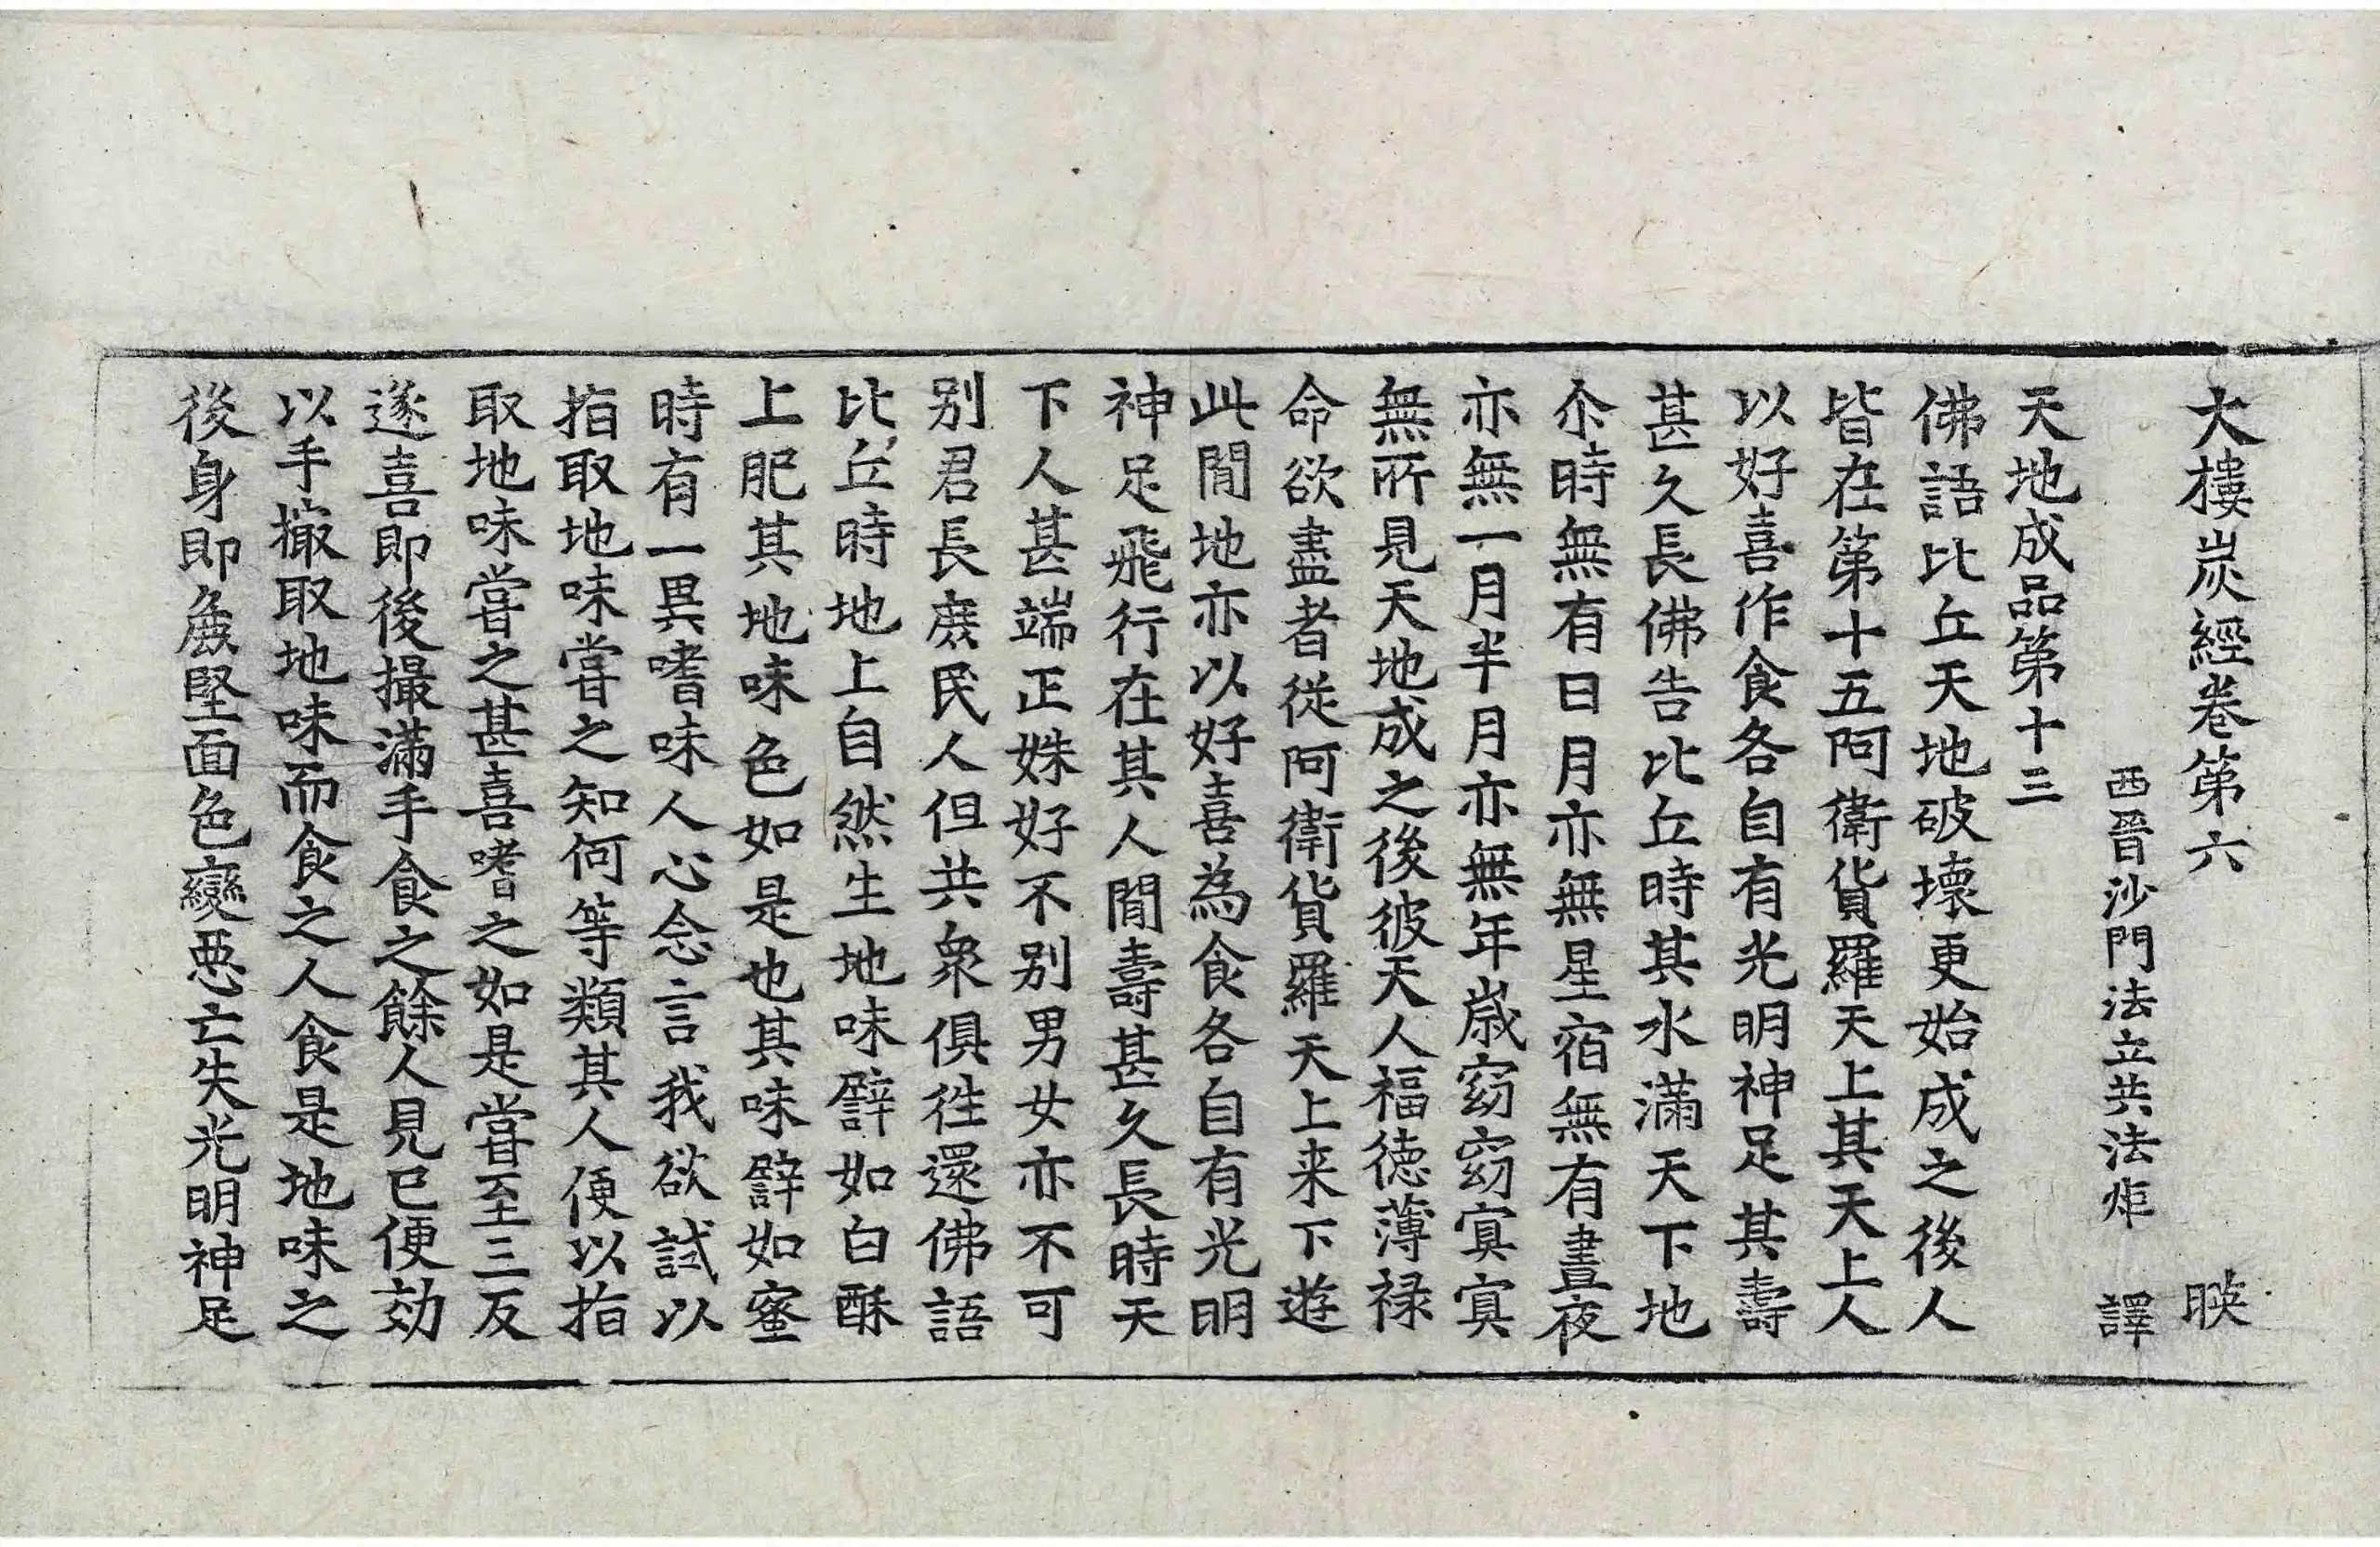 大樓炭經卷第六 暎
西晉沙門法立共法炬 譯
天地成品第十三
佛語比丘天地破壞更始成之後人
皆在第十五阿衛貨羅天上其天上人
以好喜作食各自有光明神足其壽
甚久長佛告比丘時其水滿天下地
尒時無有日月亦無星宿無有晝夜
亦無一月半月亦無年歲窈窈㝠㝠
無所見天地成之後彼天人福德薄禄
命欲盡者從阿衛貨羅天上来下遊
此閒地亦以好喜為食各自有光明
神足飛行在其人閒壽甚久長時天
下人甚端正姝好不別男女亦不可
別君長庶民人但共衆俱徃還佛語
比丘時地上自然生地味譬如白酥
上肥其地味色如是也其味譬如蜜
時有一異嗜味人心念言我欲試以
指取地味嘗之知何等類其人便以指
取地味嘗之甚喜嗜之如是嘗至三反
遂喜即後撮滿手食之餘人見已便効
以手撮取地味而食之人食是地味之
後身即麁堅面色變惡亡失光明神足